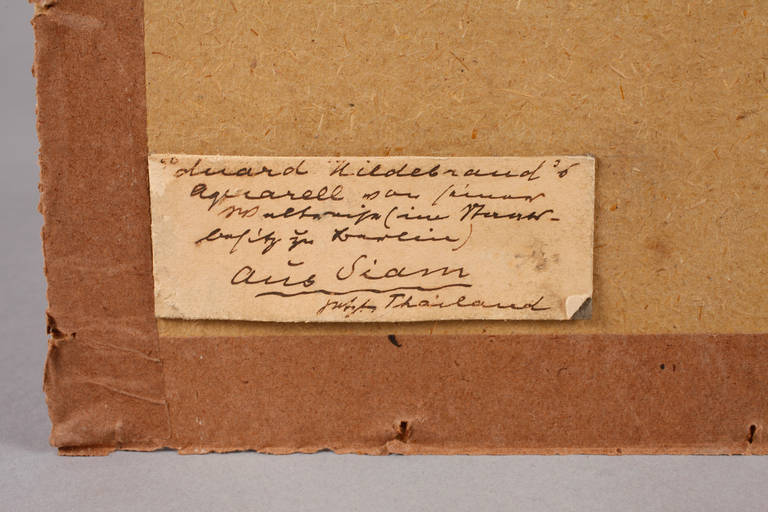 Eduard Hildebrand's
Aquarell von seiner
Weltreise (im Staats-
besitz zu Berlin)
aus Siam
jetzt Thailand